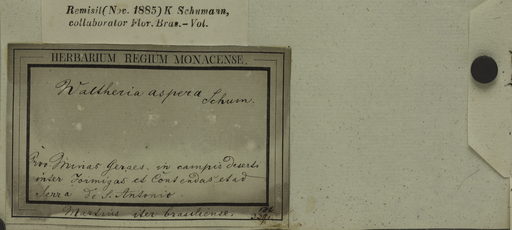 Remisit (Nov. 1885) K Schumann,
collaborator Flor. Bras. - Vol.
HERBARIUM REGIUM MONACENSE.
Waltheria aspera
Schum.
Prov Minas Geraes. in campis desertis
inter Formigas et Contendas et ad
Serra de S. Antonio.
Martius iter brasiliense.